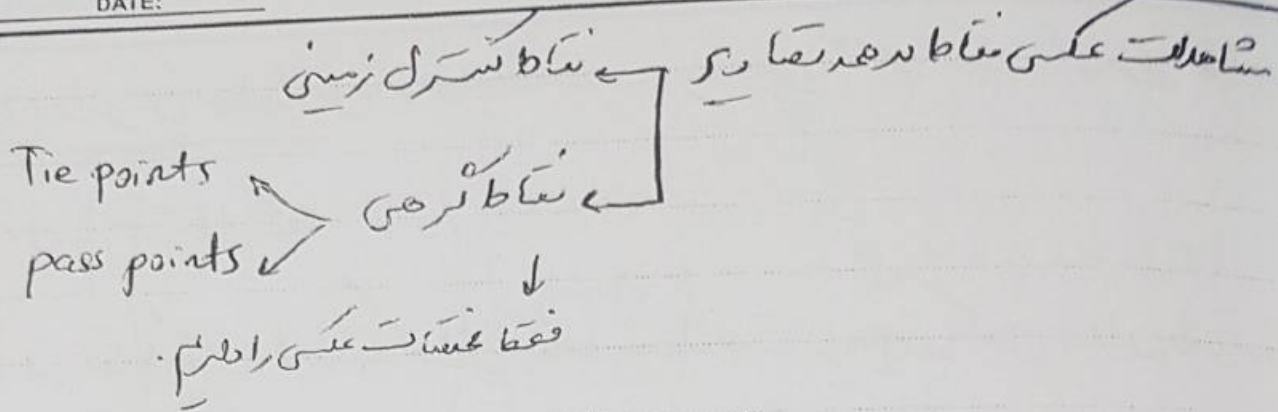 DATE:
مشاهدات عکسی نقاط در همه تصاویر ← نقاط کنترل زمینی
← نقاط گرهی
Tie points
pass points
↓
فقط مختصات عکسی را داریم.